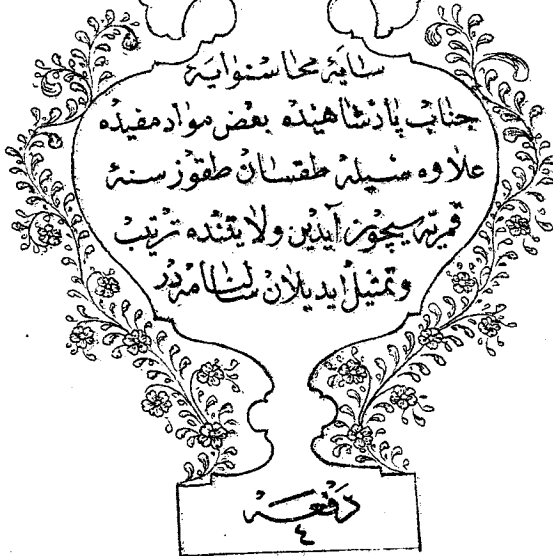 سایهٔ محاسنوایهٔ
جناب پادشاهیده بعض مواد مفیده
علاوه سیله طقسان طقوز سنهٔ
قمریه سیچون آیدین ولایتنده ترتیب
وتمثیل ایدیلان سالنامه در
دفعه
٤